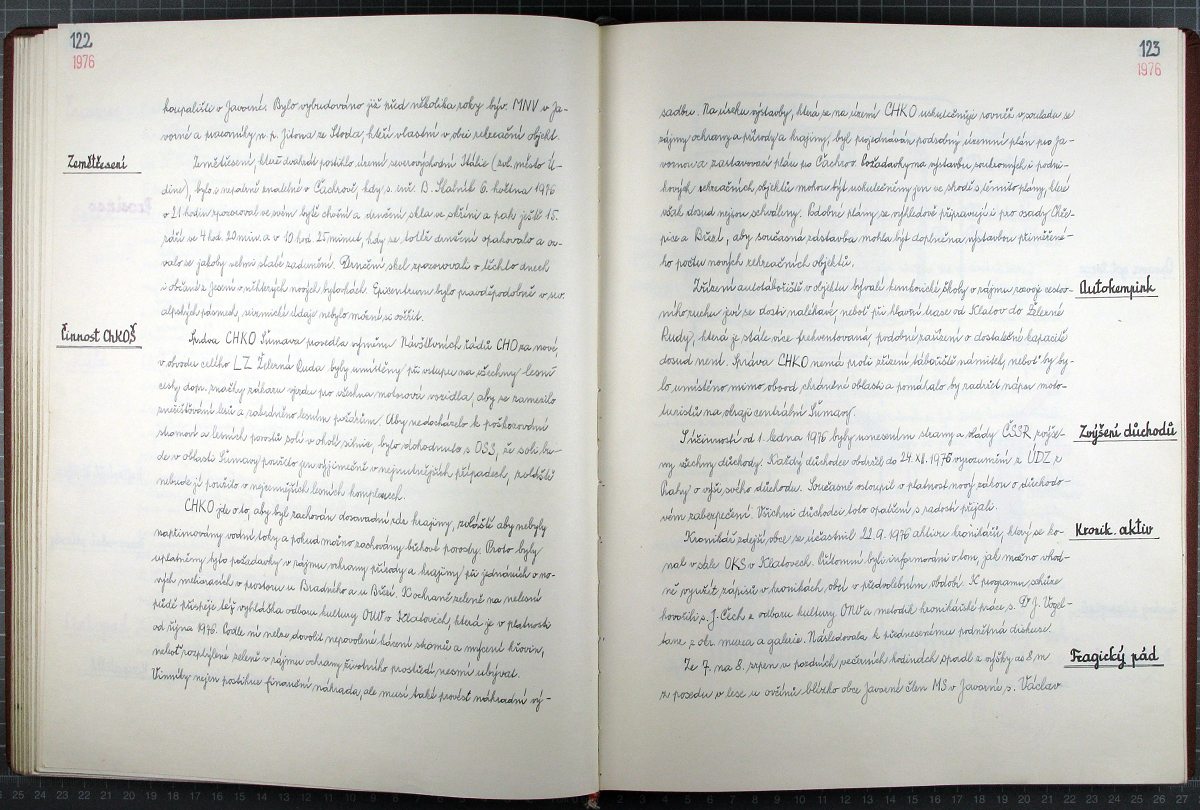 122
1976
koupaliště v Javorné. Bylo vybudováno již před několika roky býv. MNV v Ja-
vorné a pracovníky n. p. Jitona ze Stoda, kteří vlastní v obci rekreační objekt.
Zemětřesení
Zemětřesení, které dvakrát postihlo území severovýchodní Itálie (zvl. město U-
dine), bylo i nepatrně znatelné v Čachrově, kdy s. inž. B. Slatník 6. května 1976
v 21 hodin zpozoroval ve svém bytě chvění a drnčení skla ve skříni a pak ještě 15.
září ve 4 hod. 20 min. a v 10 hod. 25 minut, kdy se totéž drnčení opakovalo a o-
valo se jakoby velmi slabé zadunění. Drnčení skel zpozorovali v těchto dnech
i občané z Jesení v některých nových bytovkách. Epicentrum bylo pravděpodobně v sv.
alpských pásmech, seismické údaje nebylo možné si ověřit.
Činnost ChKOŠ
Správa CHKO Šumava provedla výměnu Návštěvních řádů CHO za nové,
v obvodu celého LZ Železná Ruda byly umístěny při vstupu na všechny lesní
cesty dopr. značky zákazu vjezdu pro všechna motorová vozidla, aby se zamezilo
znečišťování lesů a zabránilo lesním požárům. Aby nedocházelo k poškozování
stromoví a lesních porostů solí v okolí silnic, bylo dohodnuto s OSS, že soli bu-
de v oblasti Šumavy použito jen výjimečně v nejnutnějších případech, zvláště
nebude jí použito v nejcennějších lesních komplexech.
CHKO jde o to, aby byl zachován dosavadní ráz krajiny, zvláště aby nebyly
napřimovány vodní toky a pokud možno zachovány břehové porosty. Proto byly
uplatněny tyto požadavky v zájmu ochrany přírody a krajiny při jednáních o no-
vých melioracích v prostoru u Bradného a u Březí. K ochraně zeleně na nelesní
půdě přispěje též vyhláška odboru kultury ONV v Klatovech, která je v platnosti
od října 1976. Podle ní nelze dovolit nepovolené kácení stromů a mýcení křovin,
neboť rozptýlené zeleně v zájmu ochrany životního prostředí nesmí ubývat.
Viníky nejen postihne finanční náhrada, ale musí také provést náhradní vý-
123
1976
sadbu. Na úseku výstavby, která se na území CHKO uskutečňuje rovněž v souladu se
zájmy ochrany a přírody a krajiny, byl projednáván podrobný územní plán pro Ja-
vornou a zastavovací plán pro Čachrov. Požadavky na výstavbu soukromých i podni-
kových rekreačních objektů mohou být uskutečněny jen ve shodě s těmito plány, které
však dosud nejsou schváleny. Podobné plány se výhledově připravují i pro osady Chře-
pice a Březí, aby současná zástavba mohla být doplněna výstavbou přiměřené-
ho počtu nových rekreačních objektů.
Autokempink
Zřízení autotábořiště v objektu bývalé keramické školy v zájmu rozvoje cestov-
ního ruchu jeví se dosti naléhavé, neboť při hlavní trase od Klatov do Železné
Rudy, která je stále více frekventovaná, podobné zařízení o dostatečné kapacitě
dosud není. Správa CHKO nemá proti zřízení tábořiště námitek, neboť by by-
lo umístěno mimo obvod chráněné oblasti a pomáhalo by zadržet nápor moto-
turistů na okraji centrální Šumavy.
Zvýšení důchodů
S účinností od 1. ledna 1976 byly usnesením strany a vlády ČSSR zvýše-
ny všechny důchody. Každý důchodce obdržel do 24. XII. 1976 vyrozumění z ÚDZ z
Prahy o výši svého důchodu. Současně vstoupil v platnost nový zákon o důchodo-
vém zabezpečení. Všichni důchodci toto opatření s radostí přijali.
Kronik. aktiv
Kronikář zdejší obce se účastnil 22. 9. 1976 aktivu kronikářů, který se ko-
nal v sále OKS v Klatovech. Přítomní byli informováni o tom, jak možno vhod-
ně využít zápisů v kronikách obcí v předvolebním období. K programu schůze
hovořili s. J. Čech z odboru kultury ONV a metodik kronikářské práce s. Dr J. Vogel-
tanz z okr. muzea a galerie. Následovala k přednesenému podnětná diskuse.
Tragický pád
Ze 7. na 8. srpen v pozdních večerních hodinách spadl z výšky as 8 m
z posedu v lese u ovčínů blízko obce Javorné člen MS v Javorné, s. Václav